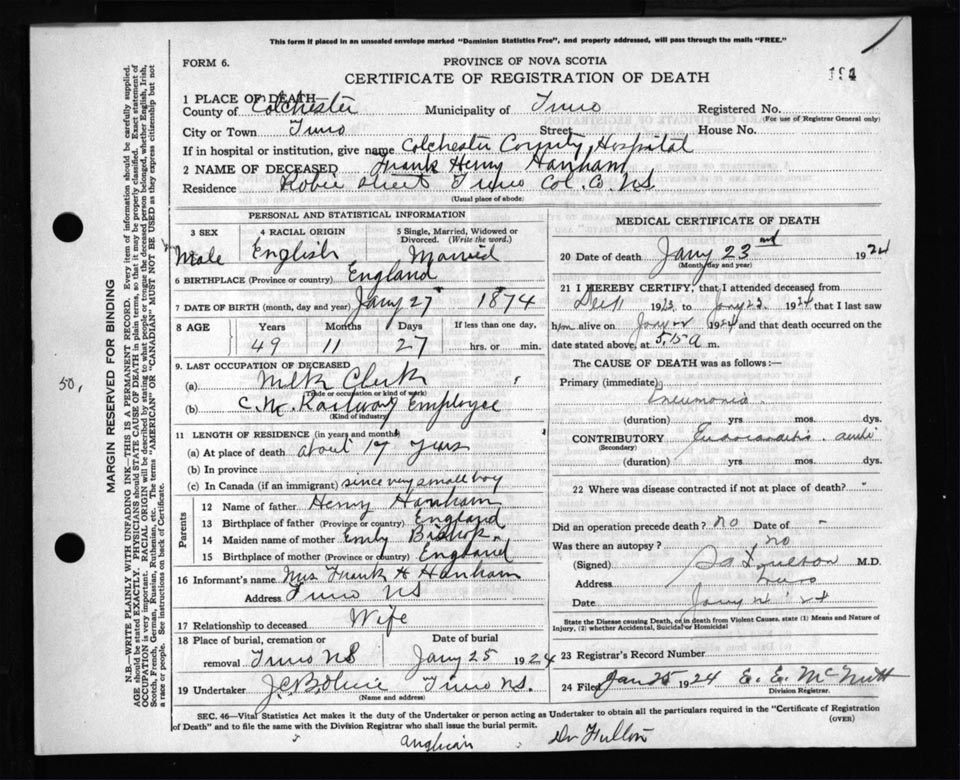 This form if placed in an unsealed envelope marked "Dominion Statistics Free", and properly addressed, will pass through the mails "FREE."
FORM 6.
PROVINCE OF NOVA SCOTIA
CERTIFICATE OF REGISTRATION OF DEATH
194
1 PLACE OF DEATH—
County of Colchester Municipality of Truro Registered No.
(For use of Registrar General only)
City or Town Truro Street House No.
If in hospital or institution, give name Colchester County Hospital
2 NAME OF DECEASED Frank Henry Hanham
Residence Robie Street Truro Col. Co. N.S.
(Usual place of abode)
PERSONAL AND STATISTICAL INFORMATION
3 SEX 4 RACIAL ORIGIN 5 Single, Married, Widowed or Divorced. (Write the word.)
Male English Married
6 BIRTHPLACE (Province or country) England
7 DATE OF BIRTH (month, day and year) Jany 27 1874
8 AGE Years Months Days If less than one day,
49 11 27 hrs. or min.
9. LAST OCCUPATION OF DECEASED
(a) Clerk
(Trade or occupation or kind of work)
(b) C.N. Railway Employee
(Kind of industry)
11 LENGTH OF RESIDENCE (in years and months)
(a) At place of death about 17 years
(b) In province
(c) In Canada (if an immigrant) since very small boy
Parents
12 Name of father Henry Hanham
13 Birthplace of father (Province or country) England
14 Maiden name of mother Emily Bishop
15 Birthplace of mother (Province or country) England
16 Informant's name Mrs Frank H Hanham
Address Truro NS
17 Relationship to deceased Wife
18 Place of burial, cremation or removal Truro NS Date of burial Jany 25 1924
19 Undertaker Truro NS.
(Name and address)
MEDICAL CERTIFICATE OF DEATH
20 Date of death Jany 23rd 1924
(Month, day and year)
21 I HEREBY CERTIFY, that I attended deceased from
Dec 11 1923 to Jany 23 1924 that I last saw
him alive on Jany 1924 and that death occurred on the
date stated above, at 5.15 a m.
The CAUSE OF DEATH was as follows:—
Primary (immediate)
Pneumonia
(duration) yrs. mos. dys.
CONTRIBUTORY Endocarditis
(Secondary)
(duration) yrs. mos. dys.
22 Where was disease contracted if not at place of death? "
Did an operation precede death? no Date of -
Was there an autopsy? no
(Signed) M.D.
Address Truro
Date Jany '24
State the Disease causing Death, or in death from Violent Causes, state (1) Means and Nature of Injury, (2) whether Accidental, Suicidal or Homicidal
23 Registrar's Record Number
24 Filed Jan 25 1924 E. E. McNutt
Division Registrar.
SEC. 46—Vital Statistics Act makes it the duty of the Undertaker or person acting as Undertaker to obtain all the particulars required in the "Certificate of Registration
of Death" and to file the same with the Division Registrar who shall issue the burial permit.
(OVER)
anglican Dr Fulton
50,
MARGIN RESERVED FOR BINDING
N.B.—WRITE PLAINLY WITH UNFADING INK—THIS IS A PERMANENT RECORD. Every item of information should be carefully supplied.
AGE should be stated EXACTLY. PHYSICIANS should STATE CAUSE OF DEATH in plain terms, so that it may be properly classified. Exact statement of
OCCUPATION is very important. RACIAL ORIGIN will be described by stating to what people or race the deceased person belonged, whether English, Irish,
Scotch, French, German, Russian, Ruthenian, etc. The terms "AMERICAN" OR "CANADIAN" MUST NOT BE USED as they express citizenship but not
a race or people. See instructions on back of Certificate.